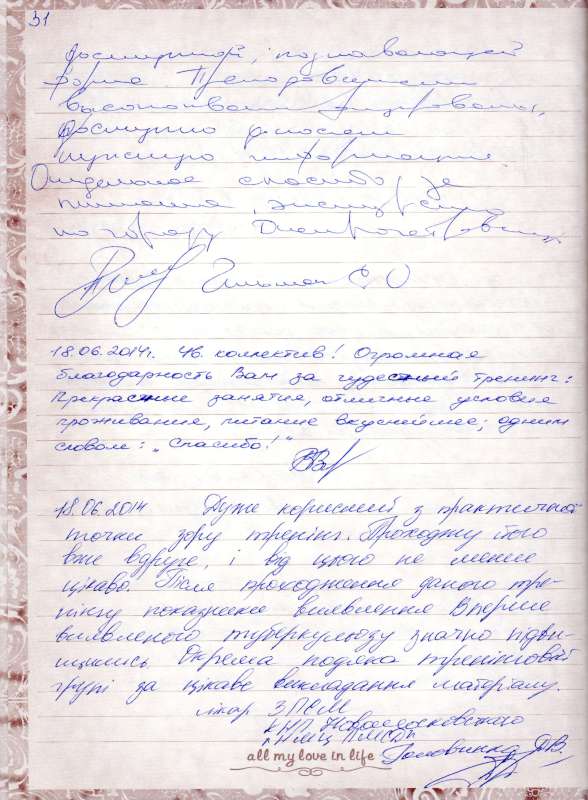 31
доступной, познавательной
форме. Преподаватели
высококвалифицированы,
доступно доносят
нужную информацию.
Отдельное спасибо за
питание, экскурсию
по городу Днепропетровску
18.06.2014г. Ув. коллектив! Огромная
благодарность Вам за чудесный тренинг:
Прекрасные занятие, отличные условия
проживания, питание вкуснейшее; одним
словом: „Спасибо!"
18.06.2014 Дуже корисний з практичної
точки зору тренінг. Проходжу його
вже вдруге, і від цього не менше
цікаво. Після проходження даного тре-
нінгу показники виявлення Вперше
виявленого туберкульозу значно підви-
щились Окрема подяка тренінговій
групі за цікаве викладання матеріалу.
лікар ЗПСМ
Новомосковського
ПМСД
Головинка
all my love in life